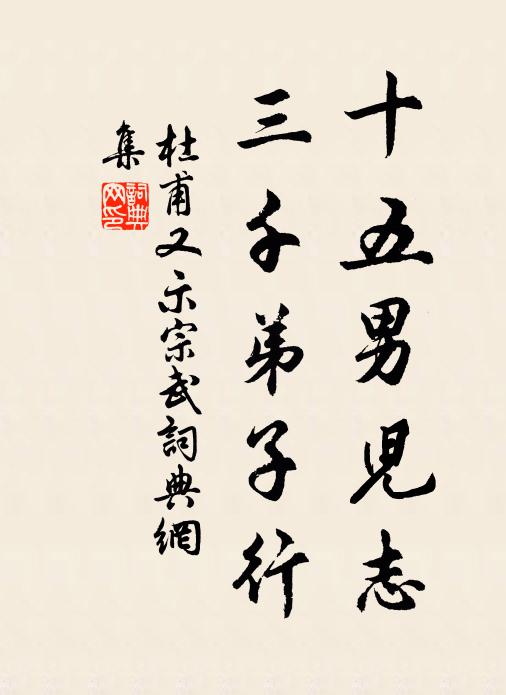 十五男兒志
三千弟子行
杜甫又示宗武詞典網
集
詞典
网印